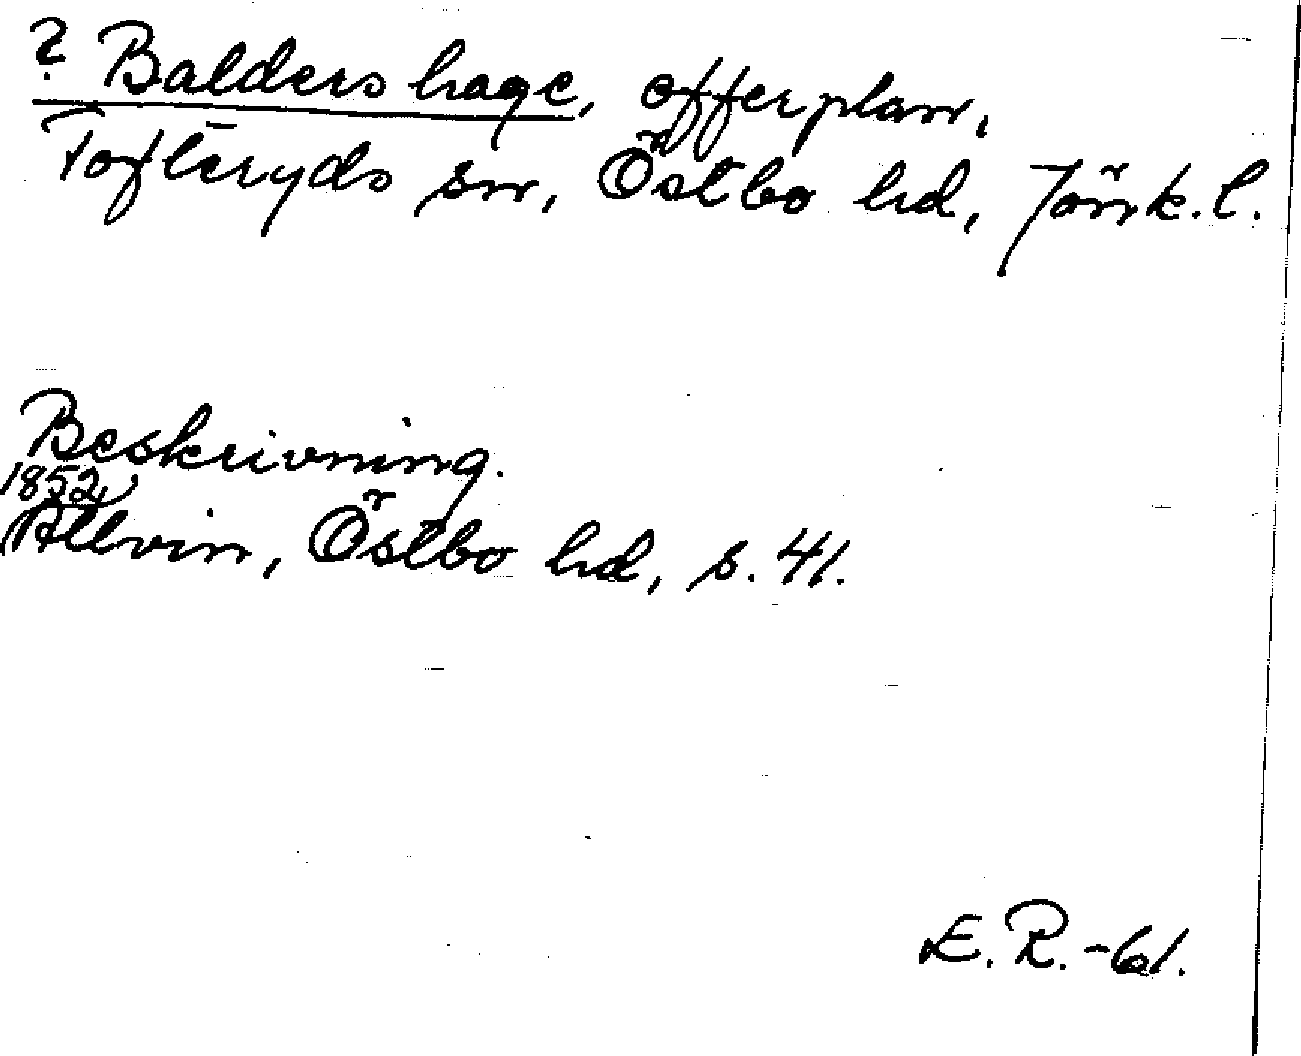 ? Balders hage, offerplan,
Tofteryds sn, Östbo hd, Jönk.l.
Beskrivning.
1852,
Allvin, Östbo hd, s. 41.
E.R.-61.